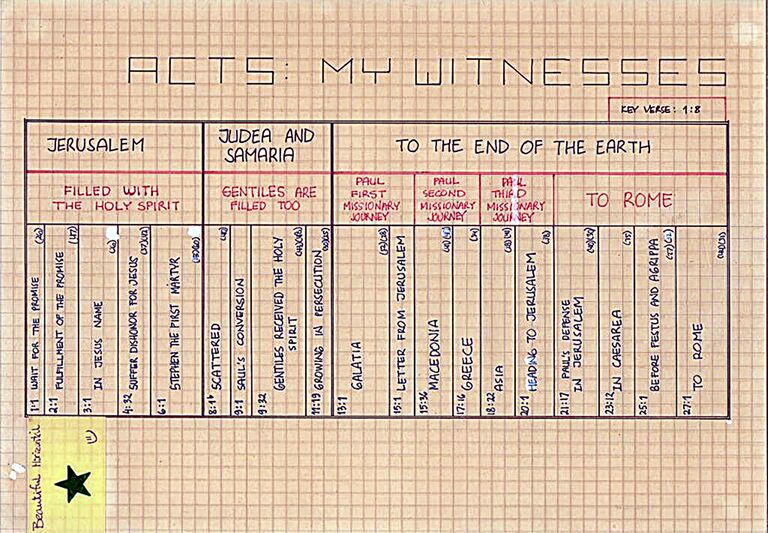 ACTS: MY WITNESSES
KEY VERSE: 1:8
JERUSALEM
JUDEA AND
SAMARIA
TO THE END OF THE EARTH
FILLED WITH
THE HOLY SPIRIT
GENTILES ARE
FILLED TOO
PAUL
FIRST
MISSIONARY
JOURNEY
PAUL
SECOND
MISSIONARY
JOURNEY
PAUL
THIRD
MISSIONARY
JOURNEY
TO ROME
1:1 WAIT FOR THE PROMISE (26)
2:1 FULFILLMENT OF THE PROMISE (47)
3:1 IN JESUS NAME
4:32 SUFFER DISHONOR FOR JESUS
6:1 STEPHEN THE FIRST MARTYR
SCATTERED
9:1 SAUL'S CONVERSION
9:32 GENTILES RECEIVED THE HOLY
SPIRIT
11:19 GROWING IN PERSECUTION
13:1 GALATIA
15:1 LETTER FROM JERUSALEM
15:36 MACEDONIA
17:16 GREECE
18:22 ASIA
20:1 HEADING TO JERUSALEM
21:17 PAUL'S DEFENSE
IN JERUSALEM
23:12 IN CAESAREA
25:1 BEFORE FESTUS AND AGRIPPA
27:1 TO ROME
Beautiful Horizontal